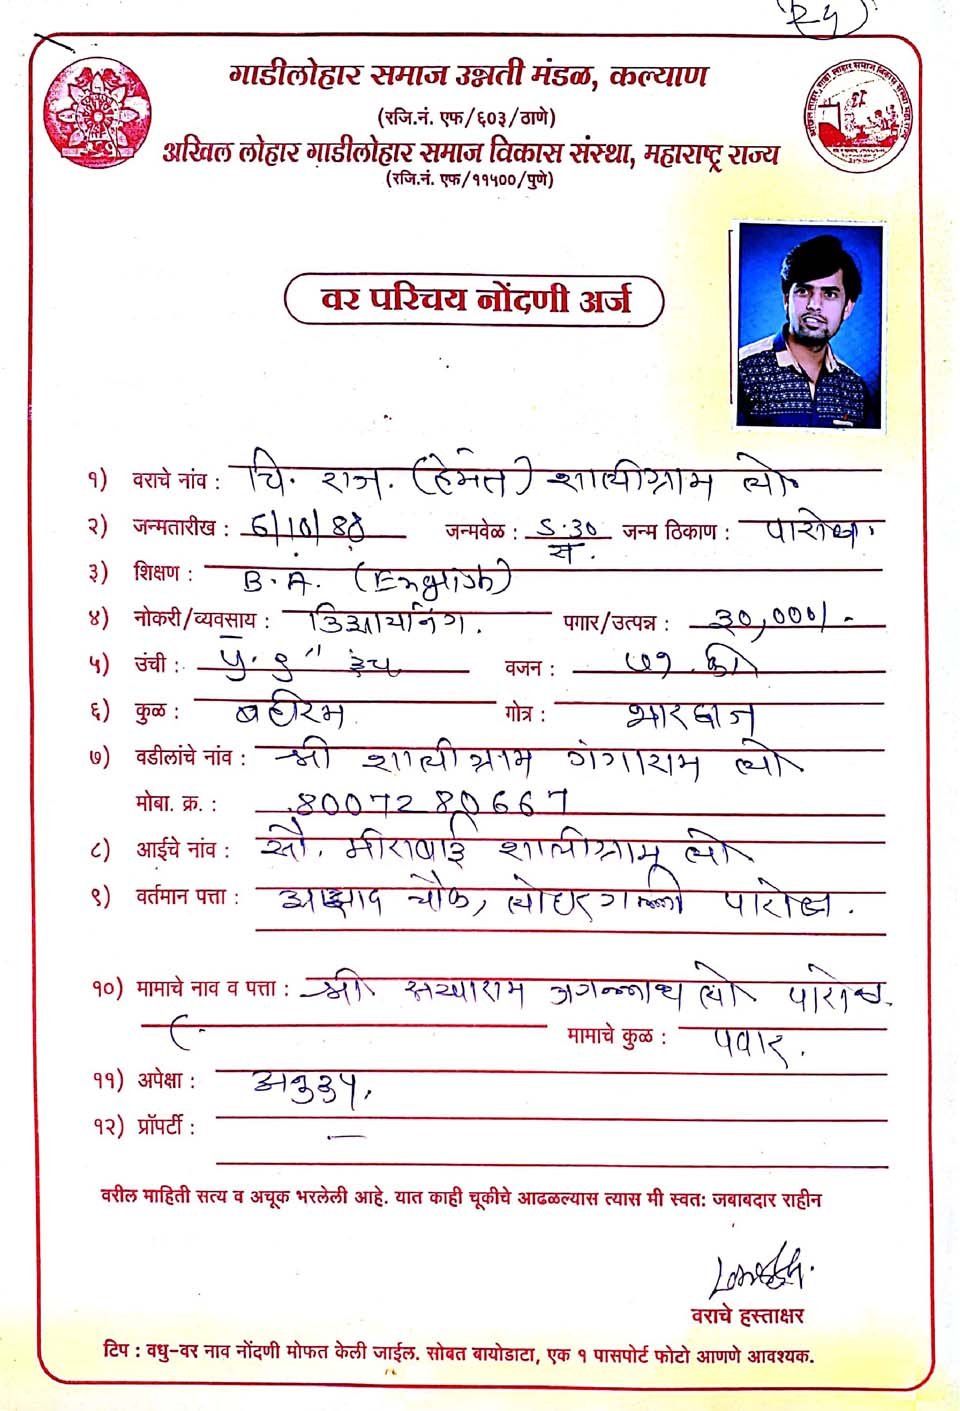 २५
गाडीलोहार समाज उन्नती मंडळ, कल्याण
(रजि.नं. एफ/६०३/ठाणे)
अखिल लोहार गाडीलोहार समाज विकास संस्था, महाराष्ट्र राज्य
(रजि.नं. एफ/११५००/पुणे)
वर परिचय नोंदणी अर्ज
१) वराचे नांव : चि. राज. (हेमंत) शालीग्राम लो
२) जन्मतारीख : 6/10/88 जन्मवेळ : ५.३० स. जन्म ठिकाण : पारोळा.
३) शिक्षण : B.A. (English)
४) नोकरी/व्यवसाय : डिझायनिंग. पगार/उत्पन्न : ३०,०००/-
५) उंची : ५.९" इंच वजन : ७१ की
६) कुळ : बहीरम गोत्र : भारद्वाज
७) वडीलांचे नांव : श्री शालीग्राम गंगाराम लो
मोबा. क्र. : 8007280667
८) आईचे नांव : सौ. मीराबाई शालीग्राम लो
९) वर्तमान पत्ता : आझाद चौक, लोहार गल्ली पारोळा.
१०) मामाचे नाव व पत्ता : श्री सखाराम जगन्नाथ लो पारोळा.
मामाचे कुळ : पवार.
११) अपेक्षा : अनुरुप.
१२) प्रॉपर्टी : —
वरील माहिती सत्य व अचूक भरलेली आहे. यात काही चूकीचे आढळल्यास त्यास मी स्वत: जबाबदार राहीन
वराचे हस्ताक्षर
टिप : वधु-वर नाव नोंदणी मोफत केली जाईल. सोबत बायोडाटा, एक १ पासपोर्ट फोटो आणणे आवश्यक.